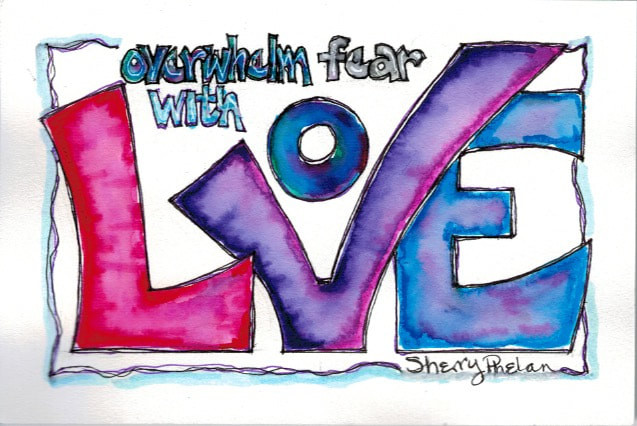 overwhelm fear
with
LOVE
Sherry Phelan